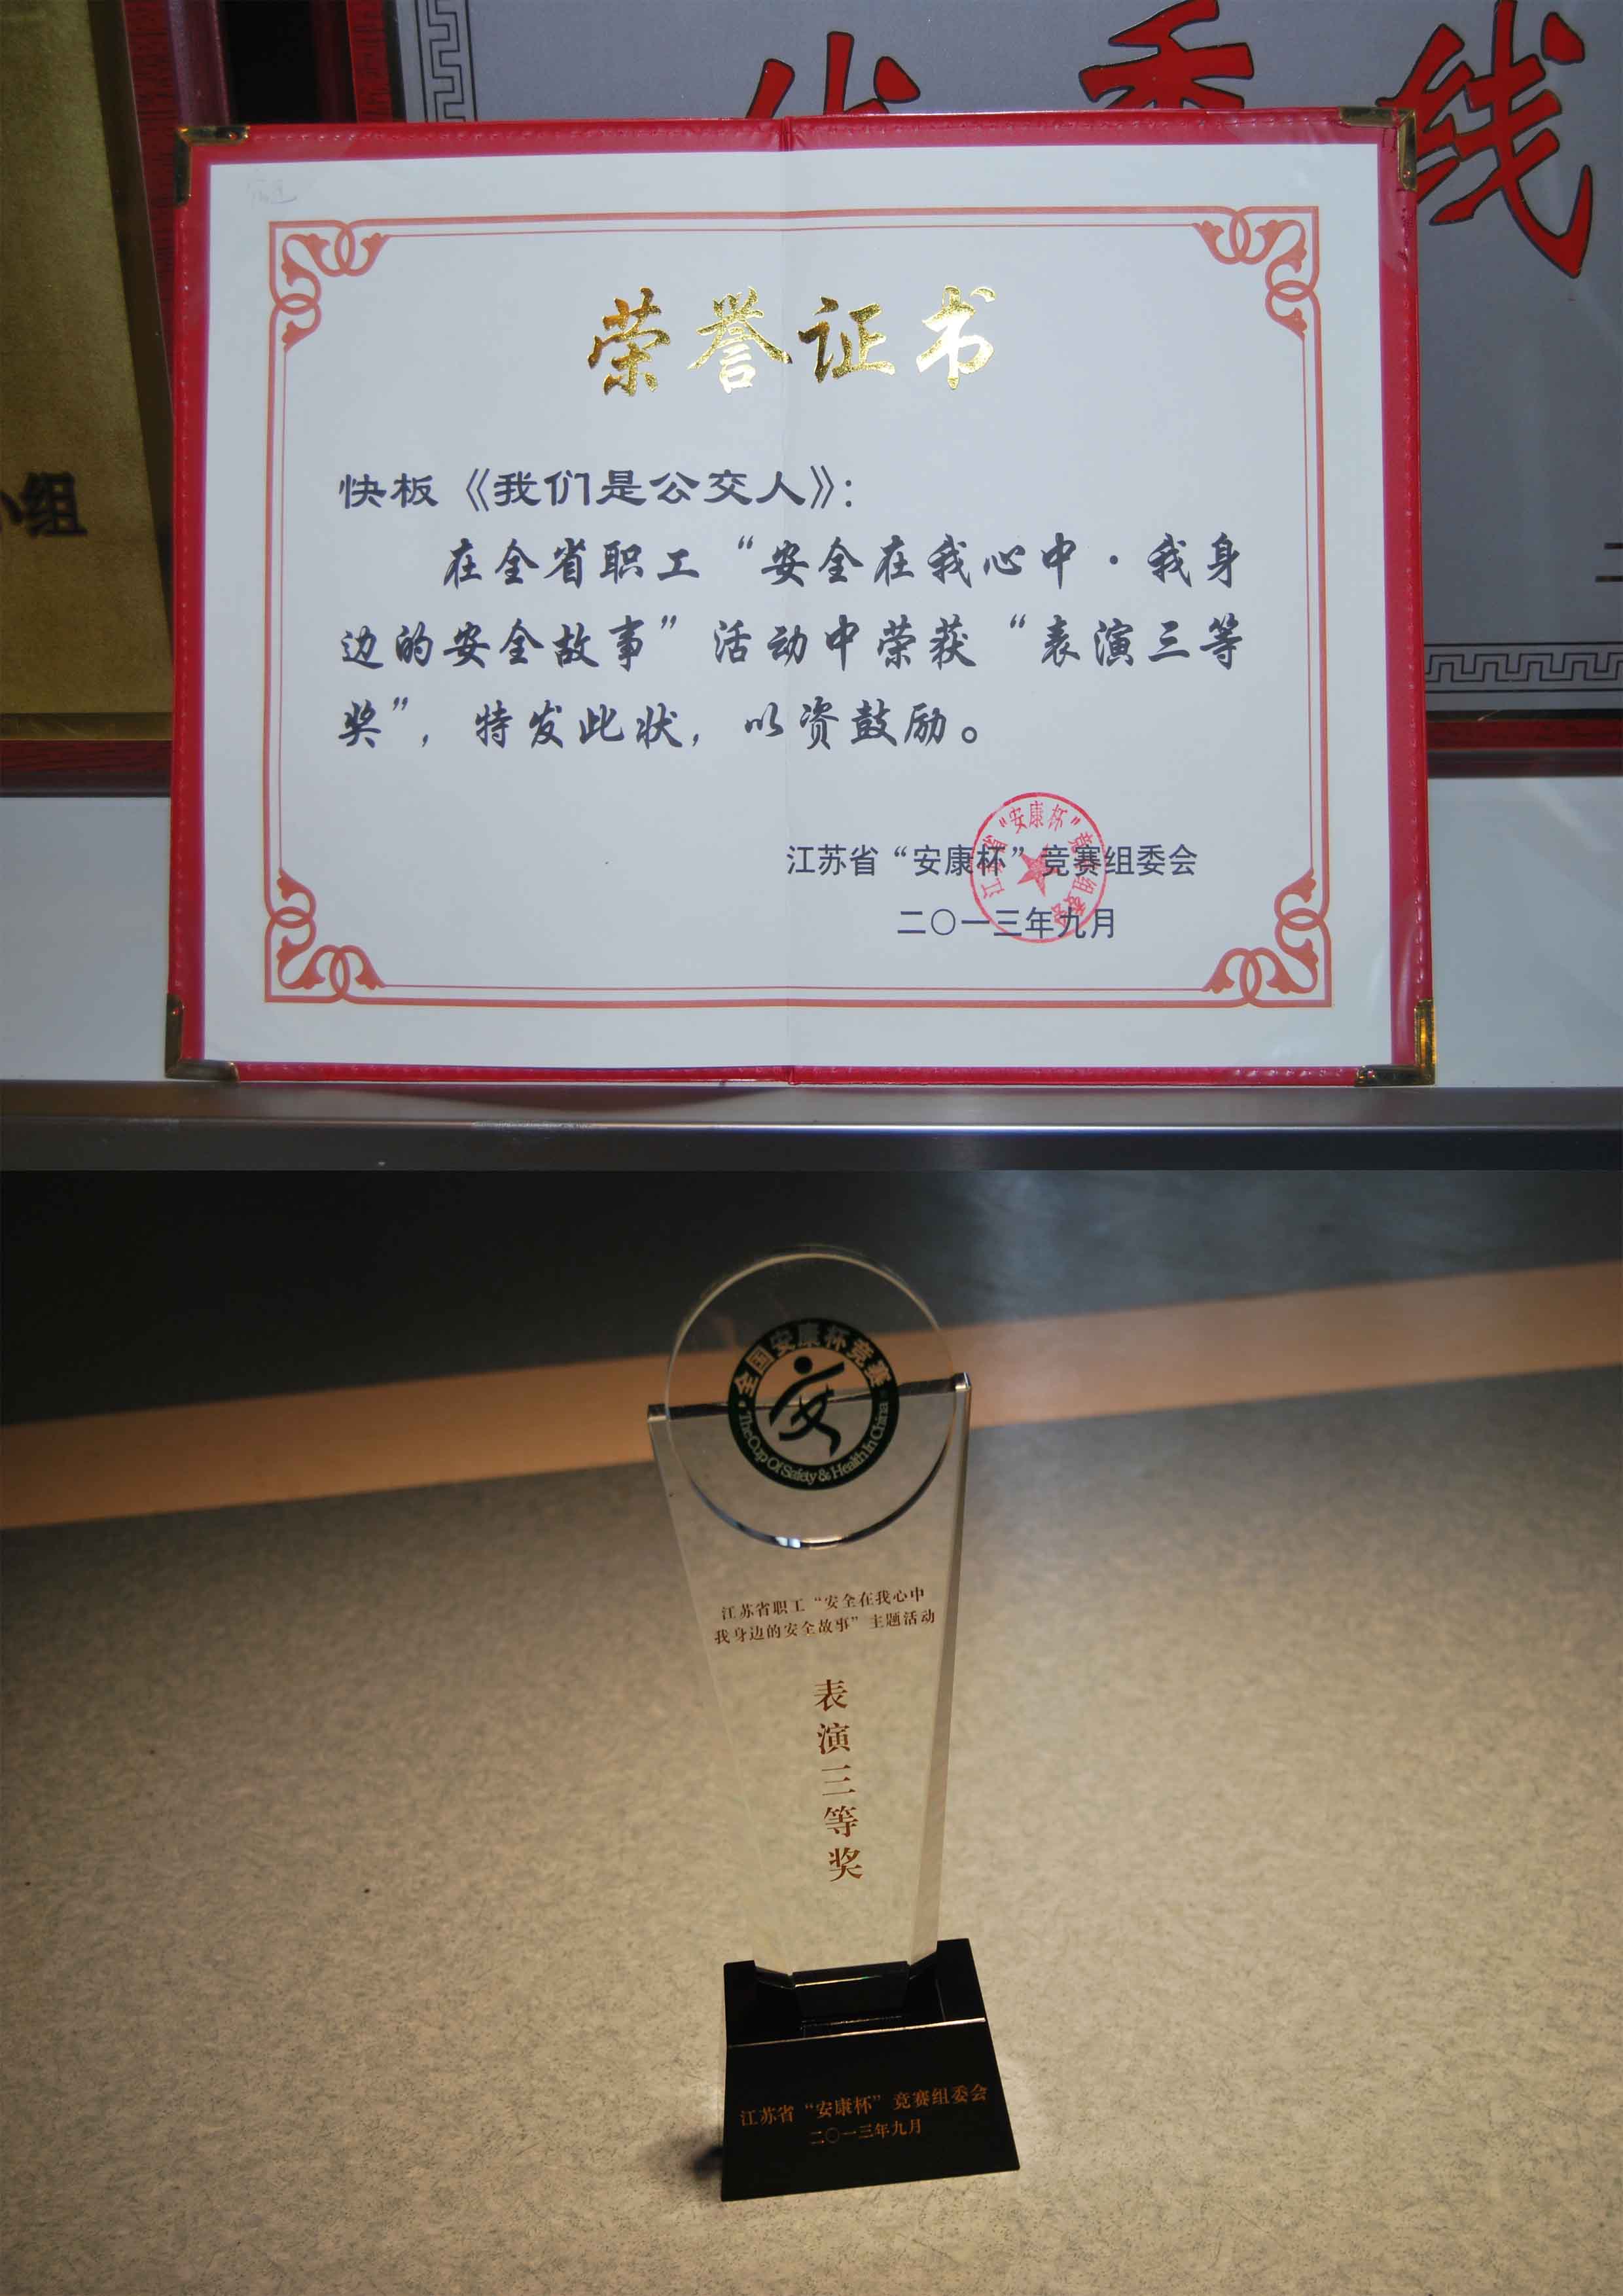 线
小组
荣誉证书
快板《我们是公交人》：
在全省职工“安全在我心中·我身
边的安全故事”活动中荣获“表演三等
奖”，特发此状，以资鼓励。
江苏省“安康杯”竞赛组委会
二〇一三年九月
江苏省“安康杯”竞赛组委会
全国安康杯竞赛
The Cup Of Safety & Health In China
江苏省职工“安全在我心中
我身边的安全故事”主题活动
表演三等奖
江苏省“安康杯”竞赛组委会
二〇一三年九月